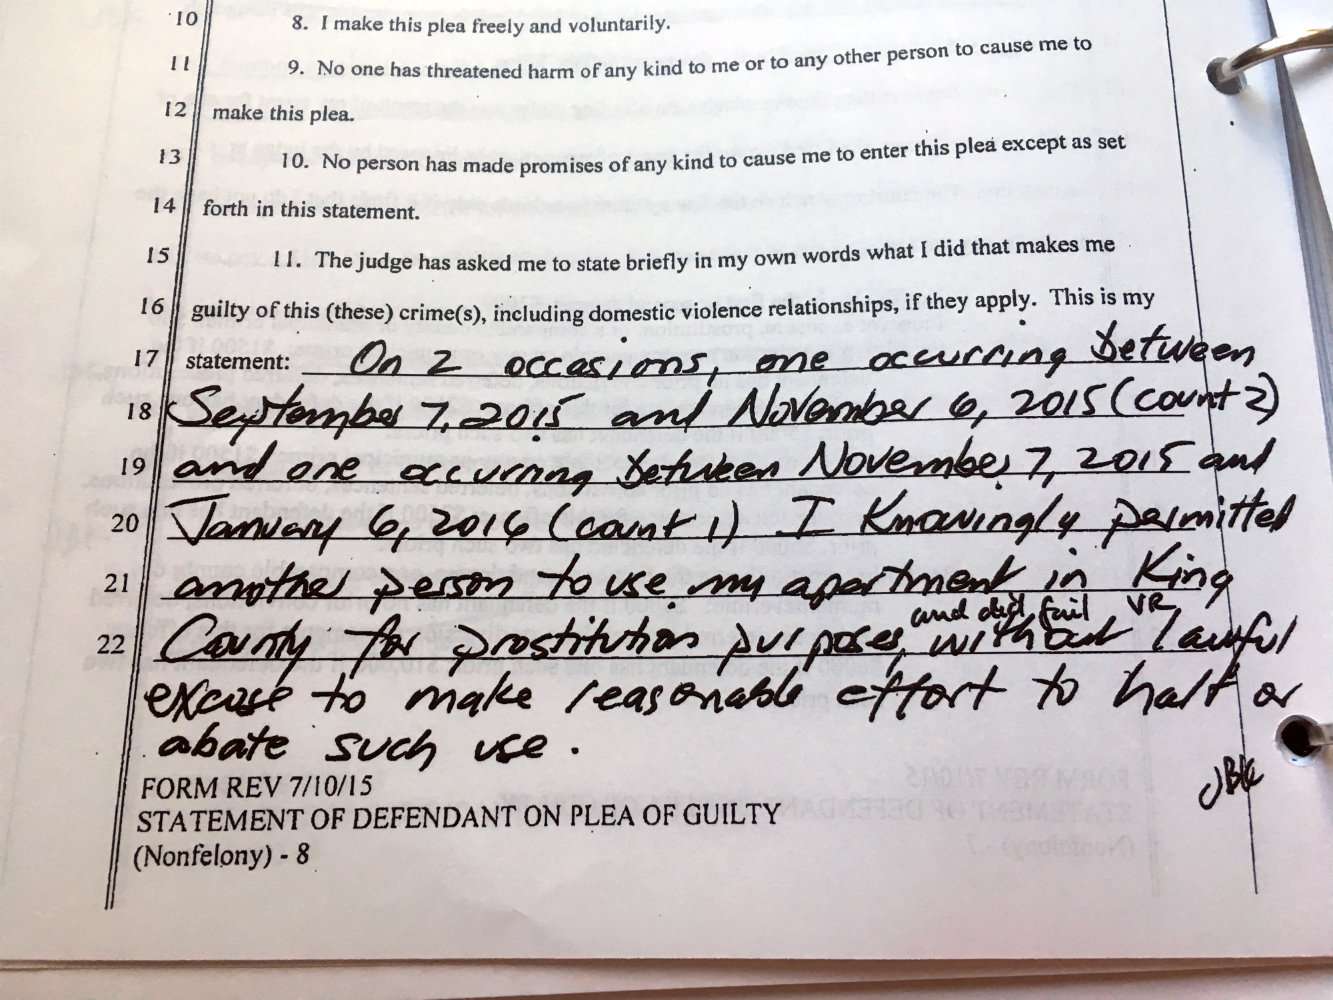 10 8. I make this plea freely and voluntarily.
11 9. No one has threatened harm of any kind to me or to any other person to cause me to
12 make this plea.
13 10. No person has made promises of any kind to cause me to enter this plea except as set
14 forth in this statement.
15 11. The judge has asked me to state briefly in my own words what I did that makes me
16 guilty of this (these) crime(s), including domestic violence relationships, if they apply. This is my
17 statement: On 2 occasions, one occurring between
18 September 7, 2015 and November 6, 2015 (count 2)
19 and one occurring between November 7, 2015 and
20 January 6, 2016 (count 1) I Knowingly permitted
21 another person to use my apartment in King
and did fail VR
22 County for prostitution purposes, without lawful
excuse to make reasonable effort to halt or
abate such use.
FORM REV 7/10/15
STATEMENT OF DEFENDANT ON PLEA OF GUILTY
(Nonfelony) - 8